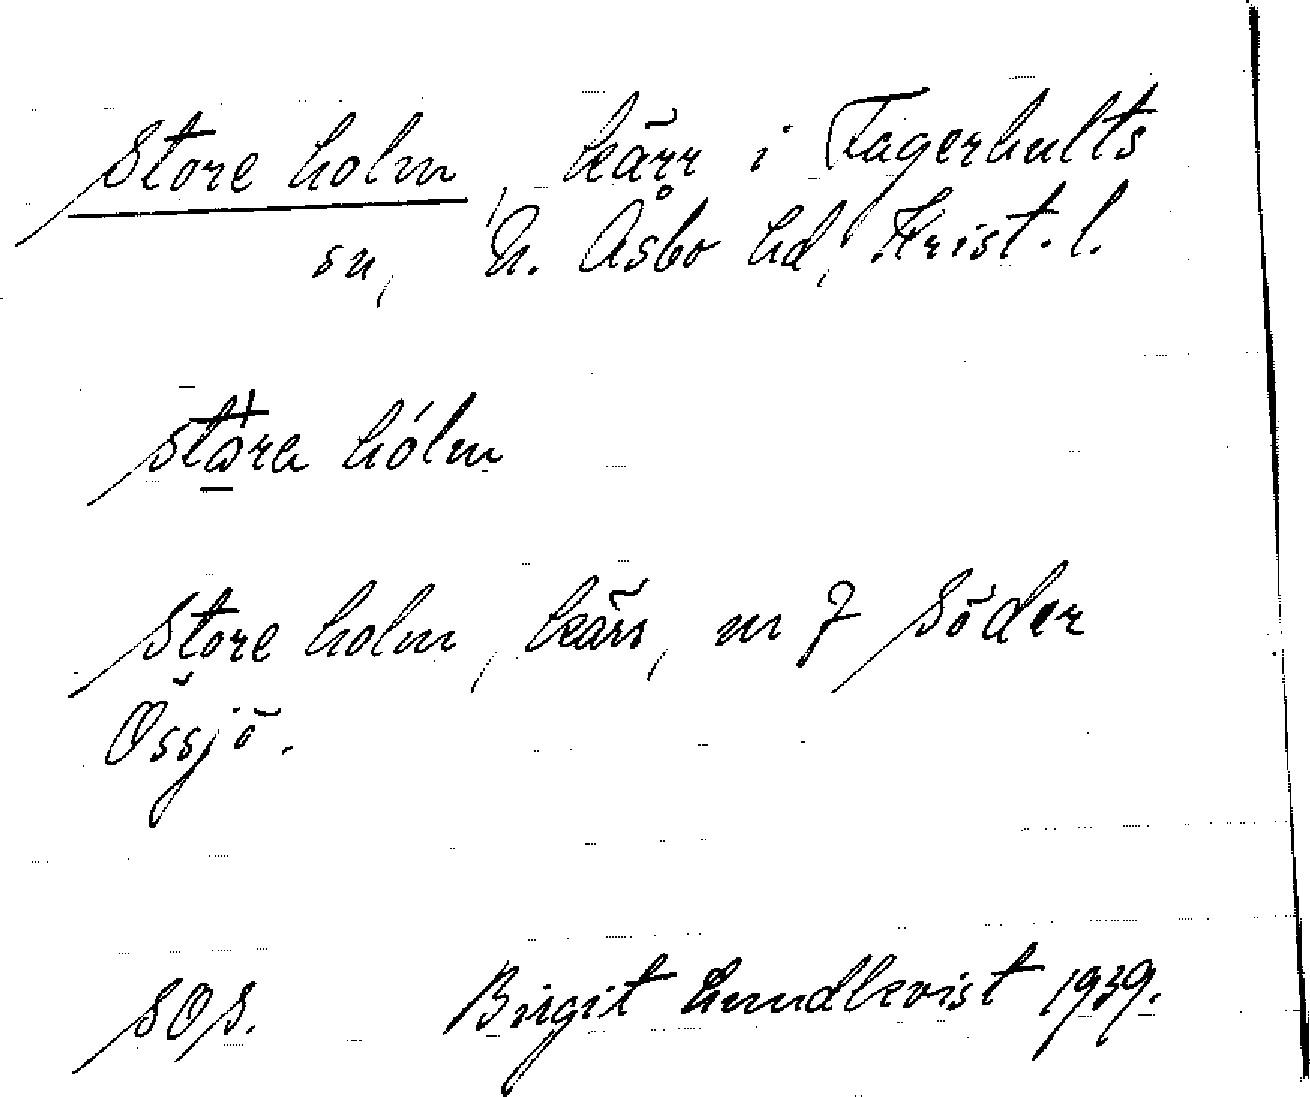 Store holm, kärr i Fagerhults
sn, N. Åsbo hd, Krist. l.
hólm
Store holm, kärr, nr 7 Söder
Össjö.
SOS. Birgit Lundkvist 1939.